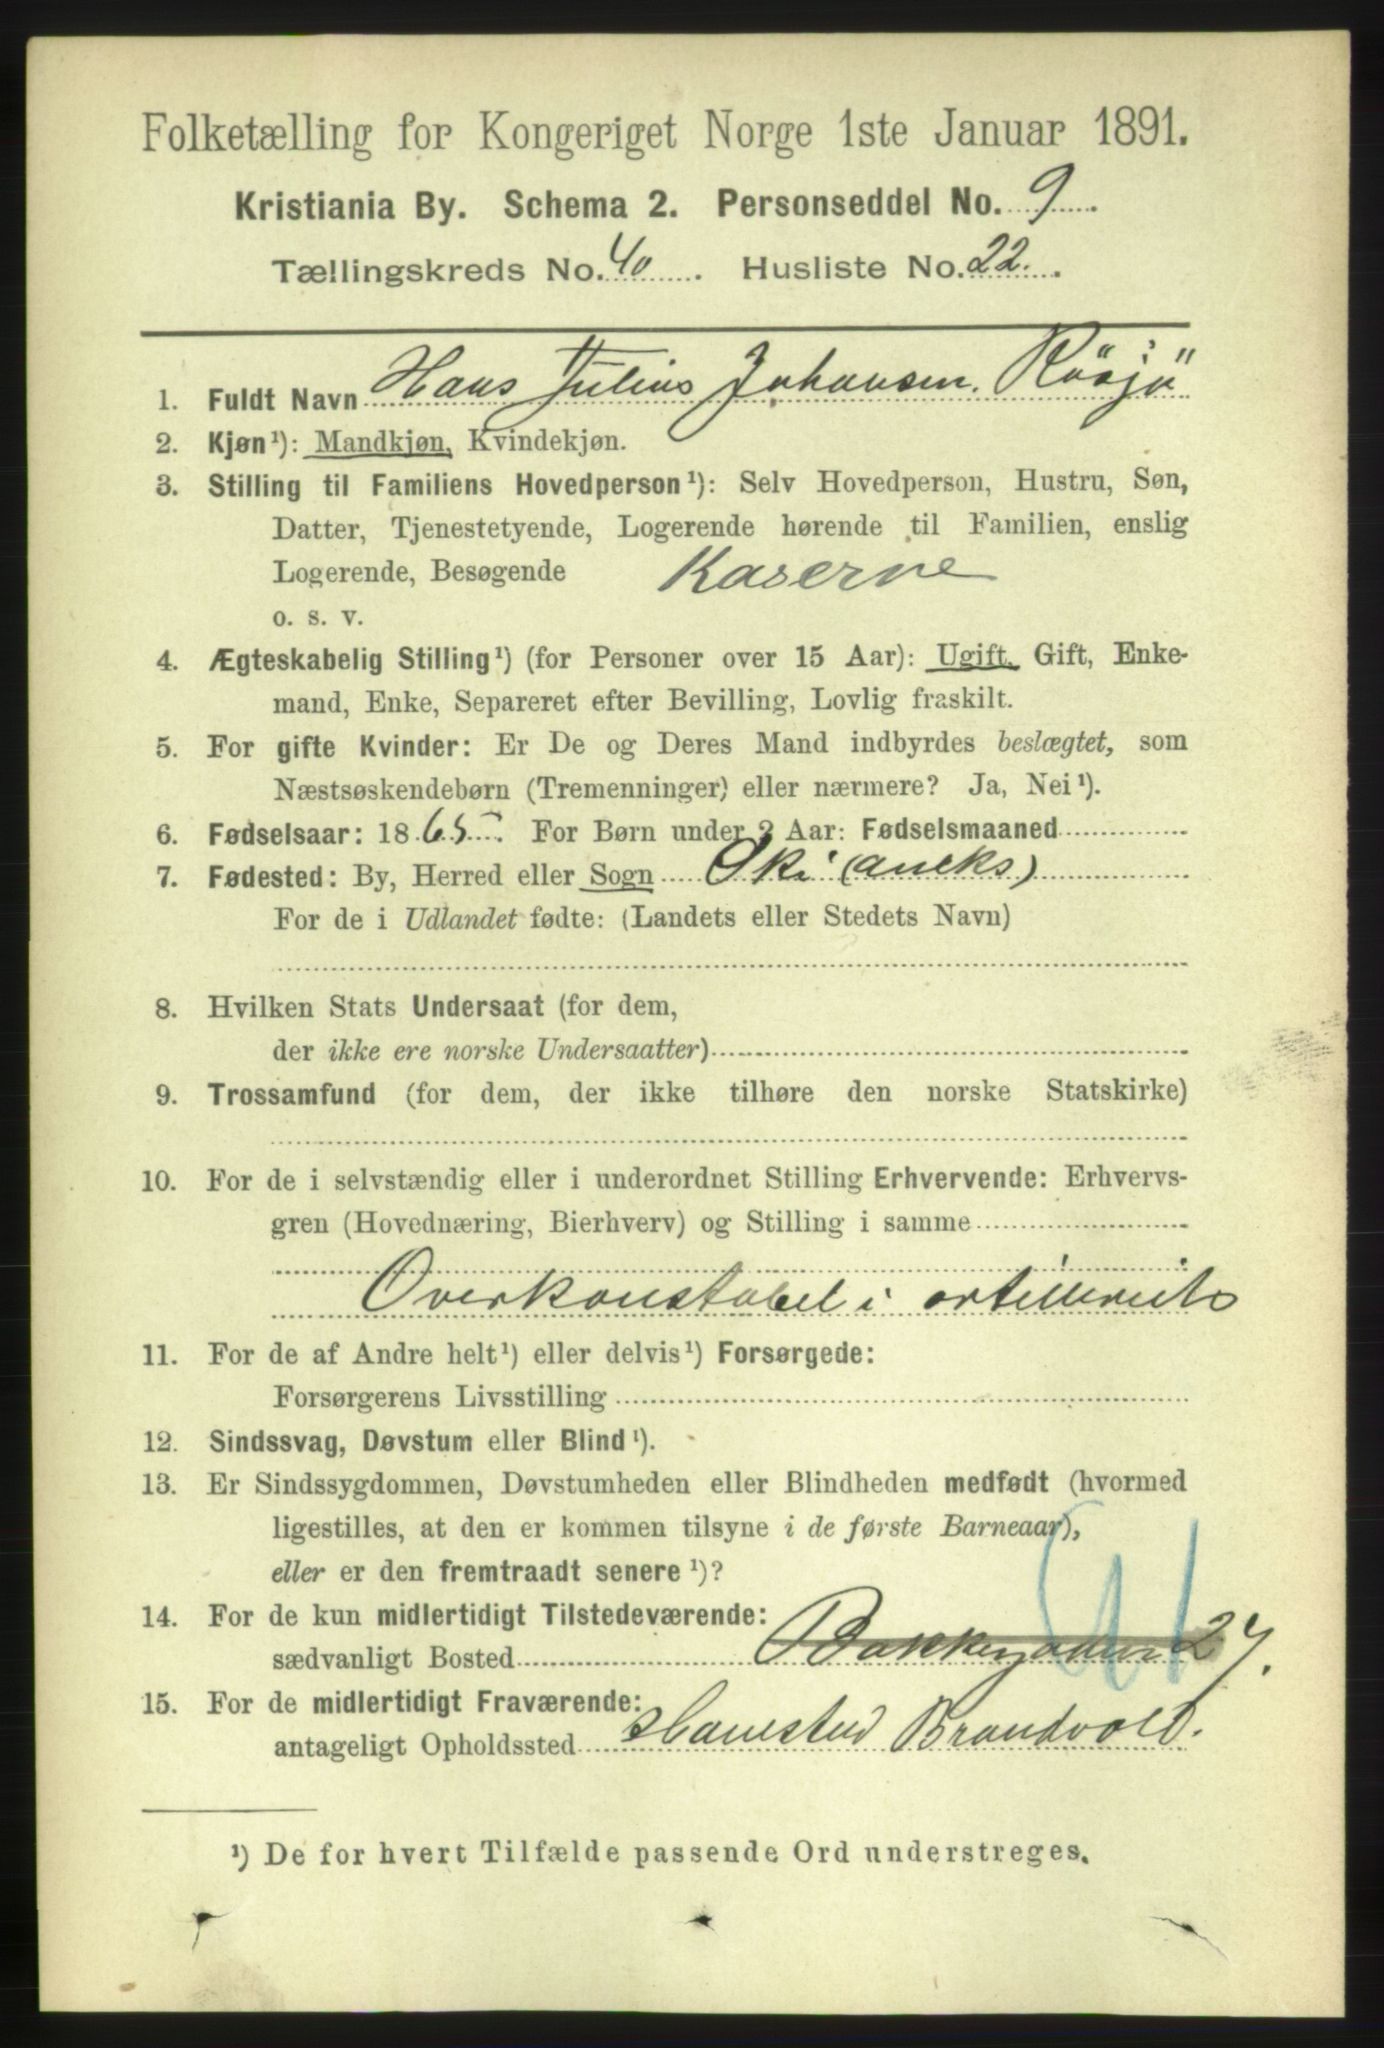 Folketælling for Kongeriget Norge 1ste Januar 1891.
Kristiania By. Schema 2. Personseddel No. 9.
Tællingskreds No. 40. Husliste No. 22.
1. Fuldt Navn Hans Julius Johansen. Röasjö
2. Kjøn¹): Mandkjøn, Kvindekjøn.
3. Stilling til Familiens Hovedperson¹): Selv Hovedperson, Hustru, Søn,
Datter, Tjenestetyende, Logerende hørende til Familien, enslig
Logerende, Besøgende Kaserne
o. s. v.
4. Ægteskabelig Stilling¹) (for Personer over 15 Aar): Ugift, Gift, Enke-
mand, Enke, Separeret efter Bevilling, Lovlig fraskilt.
5. For gifte Kvinder: Er De og Deres Mand indbyrdes beslægtet, som
Næstsøskendebørn (Tremenninger) eller nærmere? Ja, Nei¹).
6. Fødselsaar: 1865. For Børn under 2 Aar: Fødselsmaaned
7. Fødested: By, Herred eller Sogn Øki (aneks)
For de i Udlandet fødte: (Landets eller Stedets Navn)
8. Hvilken Stats Undersaat (for dem,
der ikke ere norske Undersaatter)
9. Trossamfund (for dem, der ikke tilhøre den norske Statskirke)
10. For de i selvstændig eller i underordnet Stilling Erhvervende: Erhvervs-
gren (Hovednæring, Bierhverv) og Stilling i samme
Overkonstabel i artilleriet
11. For de af Andre helt¹) eller delvis¹) Forsørgede:
Forsørgerens Livsstilling
12. Sindssvag, Døvstum eller Blind¹).
13. Er Sindssygdommen, Døvstumheden eller Blindheden medfødt (hvormed
ligestilles, at den er kommen tilsyne i de første Barneaar),
eller er den fremtraadt senere¹)?
14. For de kun midlertidigt Tilstedeværende:
sædvanligt Bosted Bakkegaden 27.
15. For de midlertidigt Fraværende:
antageligt Opholdssted Hanestad Brandvold.
¹) De for hvert Tilfælde passende Ord understreges.